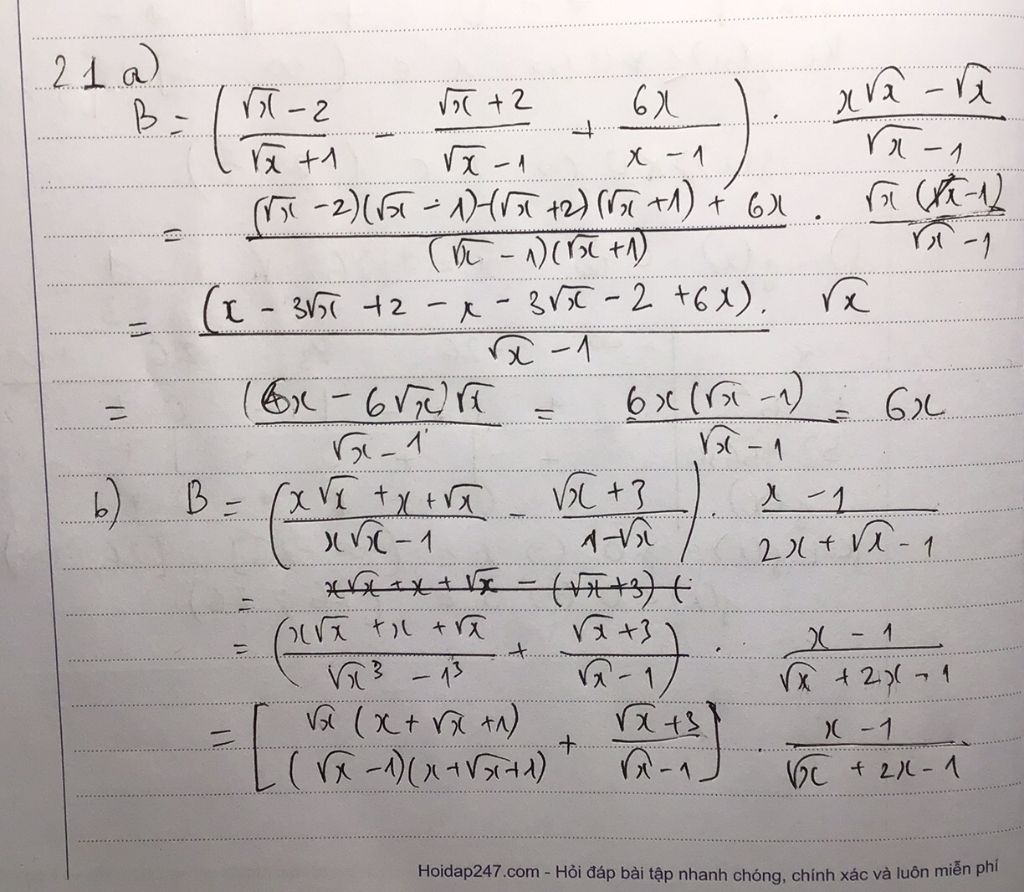 21 a)
B = ( (√x - 2)/(√x + 1) - (√x + 2)/(√x - 1) + 6x/(x - 1) ) . (x√x - √x)/(√x - 1)
= ((√x - 2)(√x - 1) - (√x + 2)(√x + 1) + 6x)/((√x - 1)(√x + 1)) . √x (x - 1)/(√x - 1)
= (x - 3√x + 2 - x - 3√x - 2 + 6x). √x/(√x - 1)
= (6x - 6√x)√x/(√x - 1) = 6x(√x - 1)/(√x - 1) = 6x
b) B = ( (x√x + x + √x)/(x√x - 1) - (√x + 3)/(1 - √x) ) . (x - 1)/(2x + √x - 1)
= x√x + x + √x - (√x + 3) (
= ( (x√x + x + √x)/(√x³ - 1³) + (√x + 3)/(√x - 1) ) . (x - 1)/(√x + 2x - 1)
= [ √x (x + √x + 1)/((√x - 1)(x + √x + 1)) + (√x + 3)/(√x - 1) ] . (x - 1)/(√x + 2x - 1)
Hoidap247.com - Hỏi đáp bài tập nhanh chóng, chính xác và luôn miễn phí